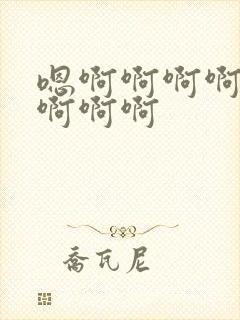 嗯啊啊啊啊
啊啊啊
乔瓦尼